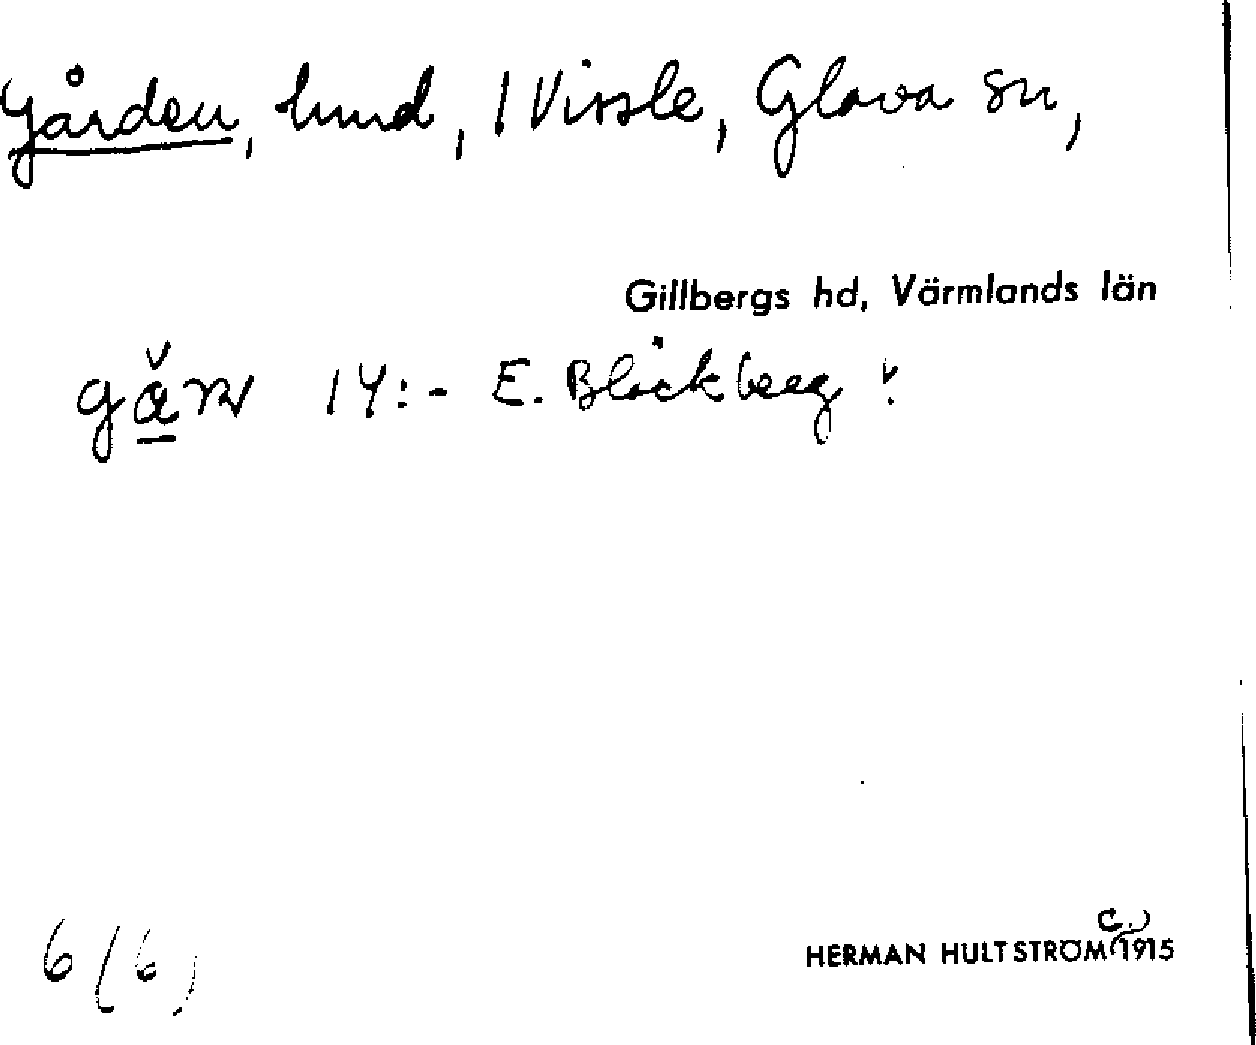 Gården, hmd, 1 Vissle, Glava sn,
Gillbergs hd, Värmlands län
14:- E. Bläckberg !
6 (6)
C.
HERMAN HULTSTRÖM (1915)